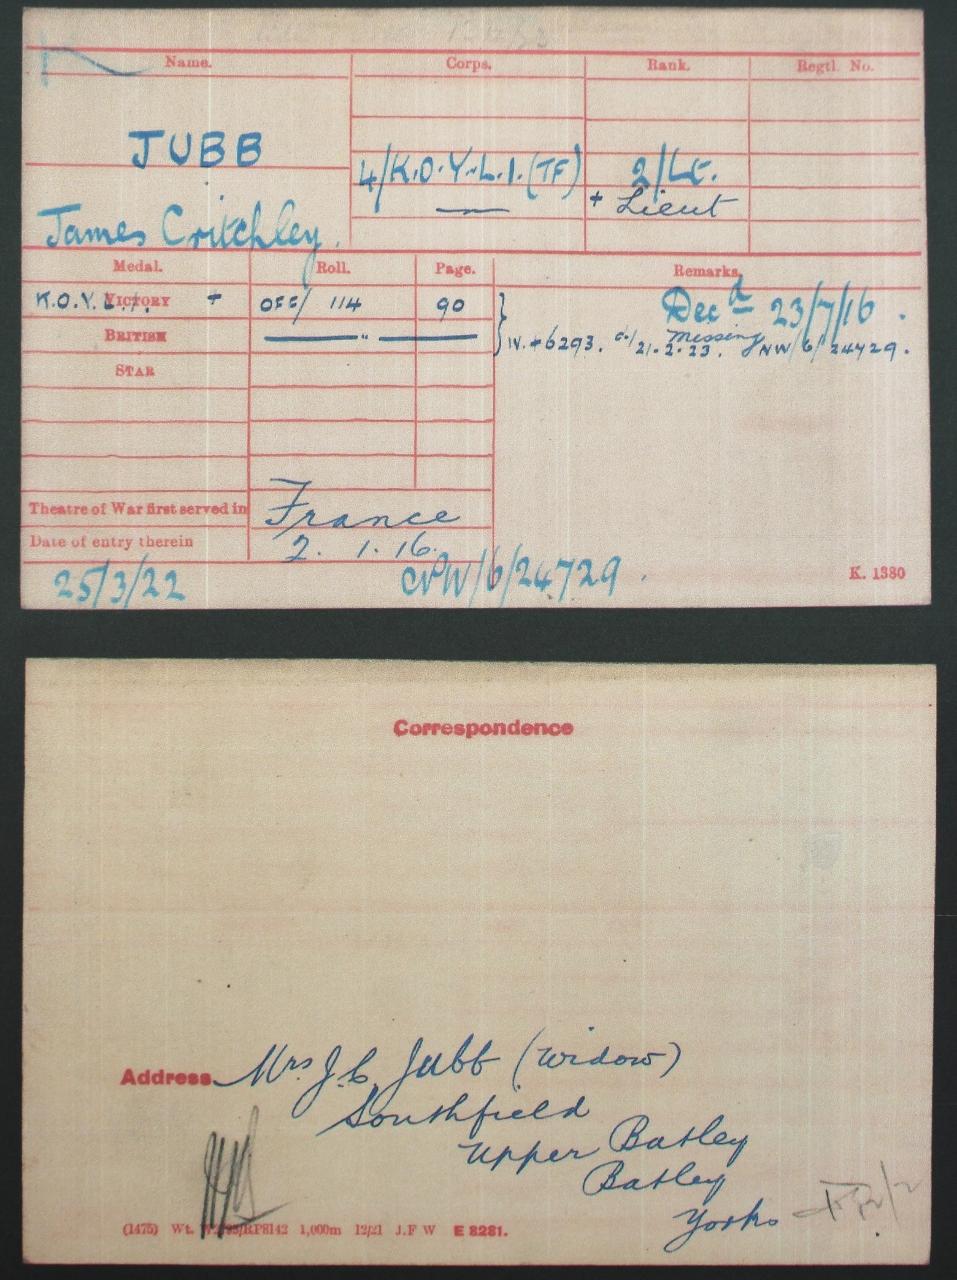 Name. Corps. Rank. Regtl. No.
JUBB 4/K.O.Y.L.I. (TF) 2/Lt.
+ Lieut
James Critchley.
Medal. Roll. Page. Remarks.
K.O.Y.L.I. VICTORY + OFF/ 114 90 Decd 23/7/16.
BRITISH —— " —— missing
IV. +6293. d/21.2.23. NW/6/24729.
STAR
Theatre of War first served in France
Date of entry therein 2. 1. 16.
25/3/22 NW/6/24729. K. 1380
Correspondence
Address. Mrs J.C. Jubb (widow)
Southfield
Upper Batley
Batley
Yorks
(1475) Wt. /RP8142 1,000m 12/21 J.F W E 8281.